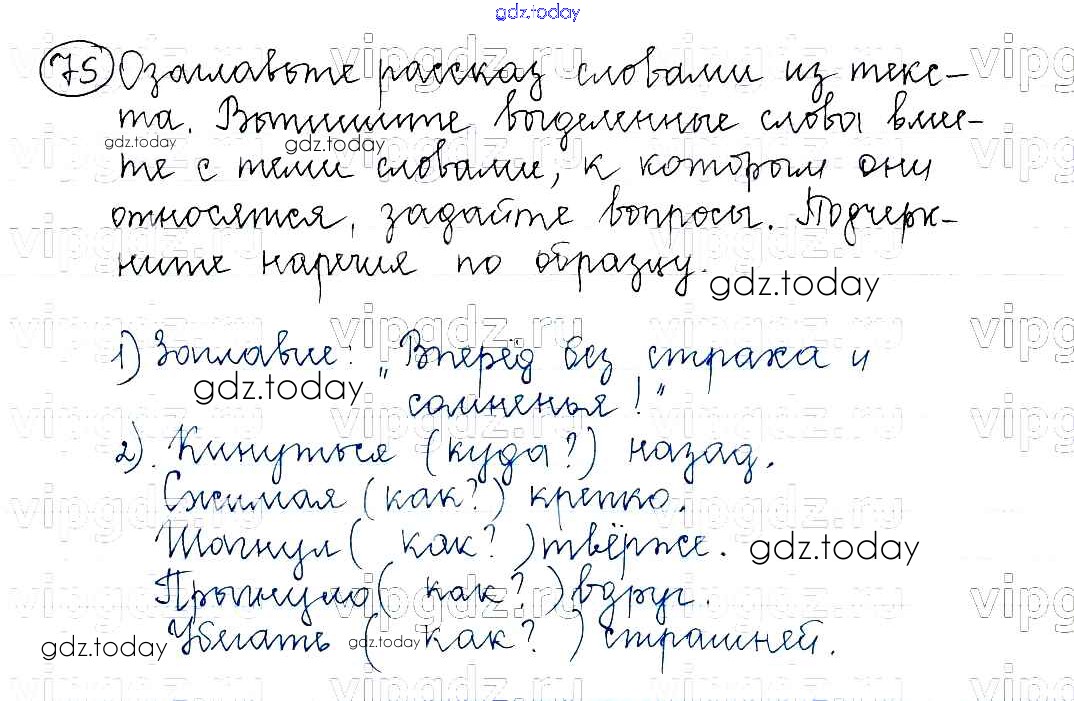 gdz.today
75 Озаглавьте рассказ словами из текс-
та. Выпишите выделенные слова вмес-
gdz.today gdz.today
те с теми словами, к которым они
относятся, задайте вопросы. Подчерк-
ните наречия по образцу.
gdz.today
vipgdz.ru vipgdz.ru vipgdz.ru vipg
1) Заглавие: „Вперёд без страха и
gdz.today
сомненья!"
2). Кинуться (куда?) назад.
Сжимая (как?) крепко.
Шагнул ( как? ) твёрже. gdz.today
Прыгнуло ( как? ) вдруг.
gdz.today Убегать ( как? ) страшней.